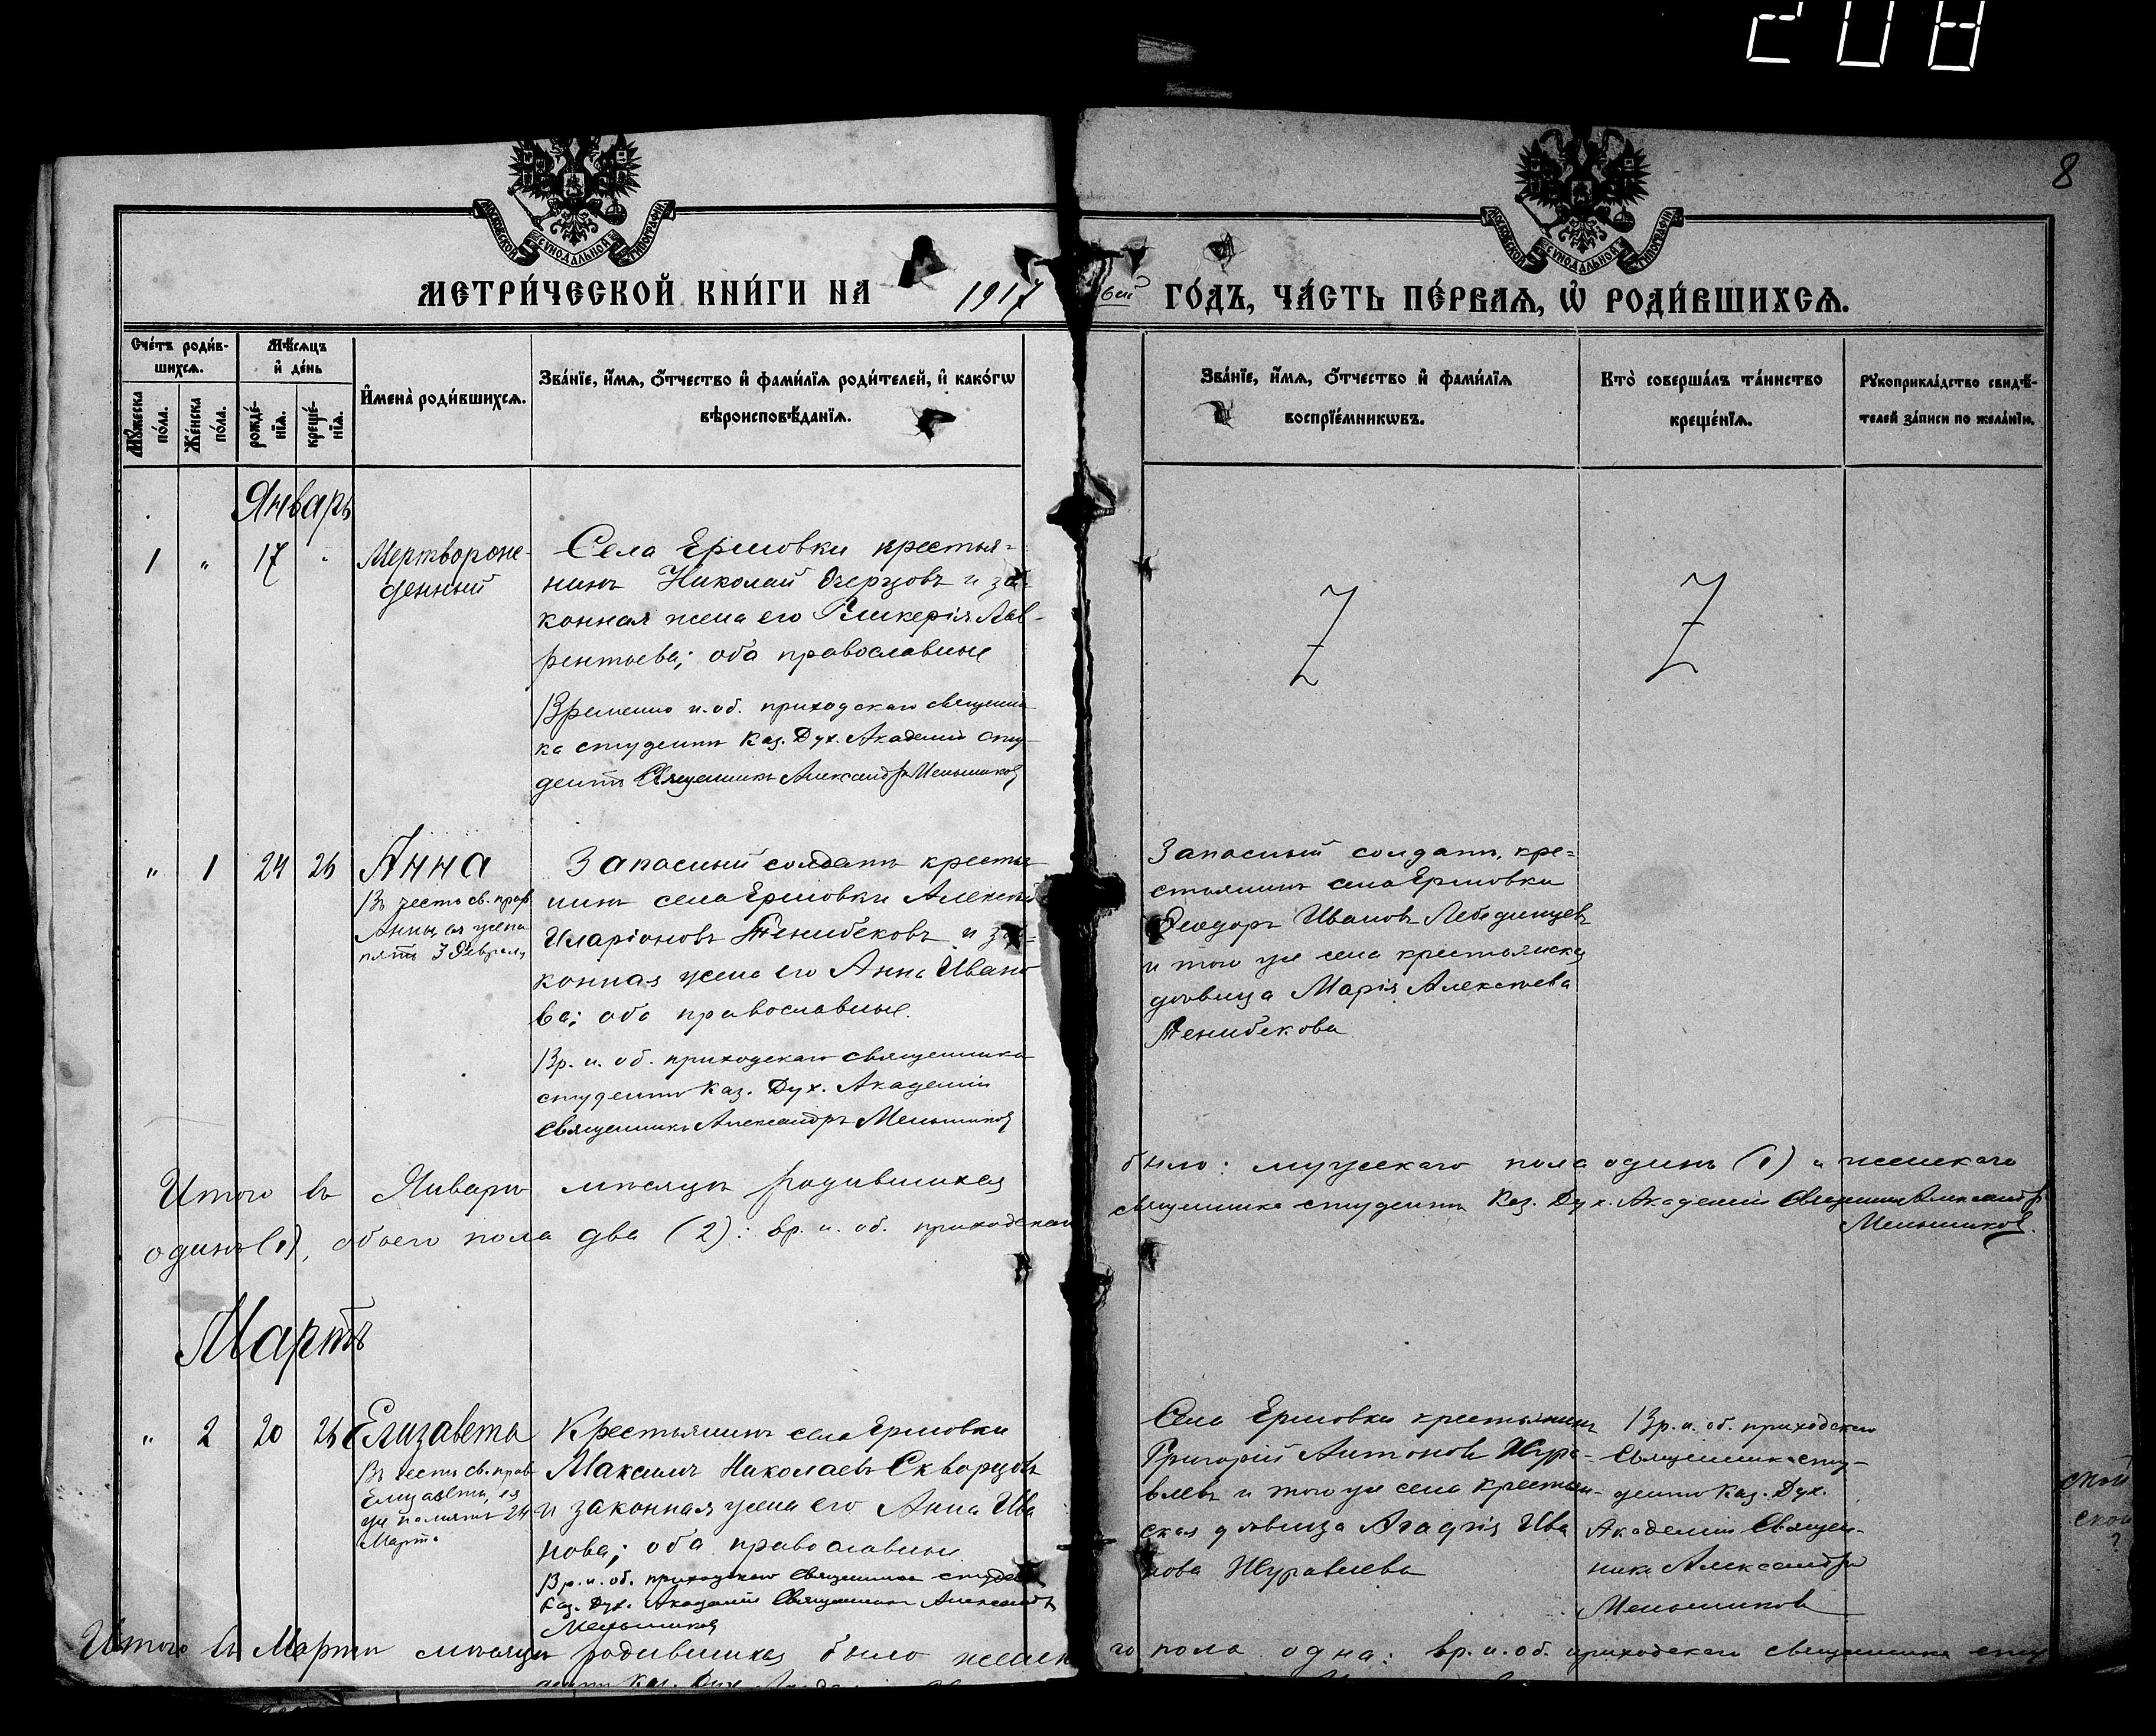 208
8
МОСКОВСКОЙ СѴНОДАЛЬНОЙ ТИПОГРАФІИ
МОСКОВСКОЙ СѴНОДАЛЬНОЙ ТИПОГРАФІИ
МЕТРИ́ЧЕСКОЙ КНИ́ГИ НА 1917 ГО́ДЪ, ЧА́СТЬ ПЕ́РВАѦ, Ѡ РОДИ́ВШИХСѦ.
Сче́тъ роди́в-
шихсѧ.
Мѣ́сѧцъ
и де́нь
Мꙋ́жеска
по́ла.
Же́нска
по́ла.
рожде́-
нїѧ.
креще́-
нїѧ.
Имена̀ роди́вшихсѧ.
Зва́нїе, и́мѧ, о́тчество и фами́лїѧ роди́телей, и како́гѡ
вѣроисповѣ́данїѧ.
Зва́нїе, и́мѧ, о́тчество и фами́лїѧ
воспрїе́мникѡвъ.
Кто̀ соверша́лъ та́инство
креще́нїѧ.
Рꙋкоприкла́дство свидѣ́-
телей за́писи по жела́нїю.
Январь
1 " 17 "
Мертворож-
денный
Села Ершовки крестья-
нинъ Николай и за-
конная жена его Гликерія Лав-
рентьева; оба православные
Временно и. об. приходскаго священни-
ка студентъ Каз. Дух. Академіи сту-
дентъ Священникъ Александръ Меньшиковъ
" 1 24 26
Анна
Въ честь св. прав.
Анны, ея
3 Февраля
Запасный солдатъ крестья-
нинъ села Ершовки Алексѣй
Иларіоновъ Тенибековъ и за-
конная жена его Анна Ивано-
ва; оба православные.
Вр. и. об. приходскаго священника
студентъ Каз. Дух. Академіи
Священникъ Александръ Меньшиковъ
Запасный солдатъ, кре-
стьянинъ села Ершовки
Ѳеодоръ Ивановъ Лебединцевъ
и того же села крестьянская
дѣвица Марія Алексѣева
Тенибекова
Итого въ Январѣ мѣсяцѣ родившихся было: мужескаго пола одинъ (1) и женскаго
одинъ (1), обоего пола два (2): вр. и. об. приходскаго священника студентъ Каз. Дух. Академіи Священникъ Александръ
Меньшиковъ.
Мартъ
" 2 20 26
Елизавета
Въ честь св. прав.
Елизаветы, ея
же память 24
Марта
Крестьянинъ села Ершовки
Максимъ Николаевъ Скворцовъ
и законная жена его Анна Ива-
нова; оба православные.
Вр. и. об. приходскаго Священника студентъ
Каз. Дух. Академіи Священникъ Александръ
Меньшиковъ
Села Ершовки крестьянинъ
Григорій Антоновъ Жура-
влевъ и того же села крестьян-
ская дѣвица Агафія Ива-
нова Журавлева
Вр. и. об. приходскаго
Священника сту-
дентъ Каз. Дух.
Академіи Священ-
никъ Александръ
Меньшиковъ
Итого въ Мартѣ мѣсяцѣ родившихся было женскаго пола одна: вр. и. об. приходскаго священника сту-
дентъ Каз. Дух.